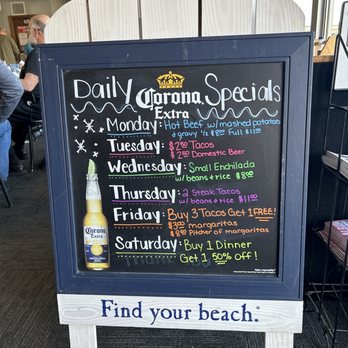 Daily Specials
Corona
Extra
Monday: Hot Beef w/mashed potatoes
+ gravy ½ $8 Full $11
Tuesday: $2.00 Tacos
$2.00 Domestic Beer
Wednesday: Small Enchilada
w/beans + rice $8.00
Thursday: 2 Steak Tacos
w/beans + rice $11.00
Friday: Buy 3 Tacos Get 1 FREE!
$3.00 margaritas
$8.00 Pitcher of margaritas
Saturday: Buy 1 Dinner
Get 1 50% off!
Corona
Extra
Find your beach.